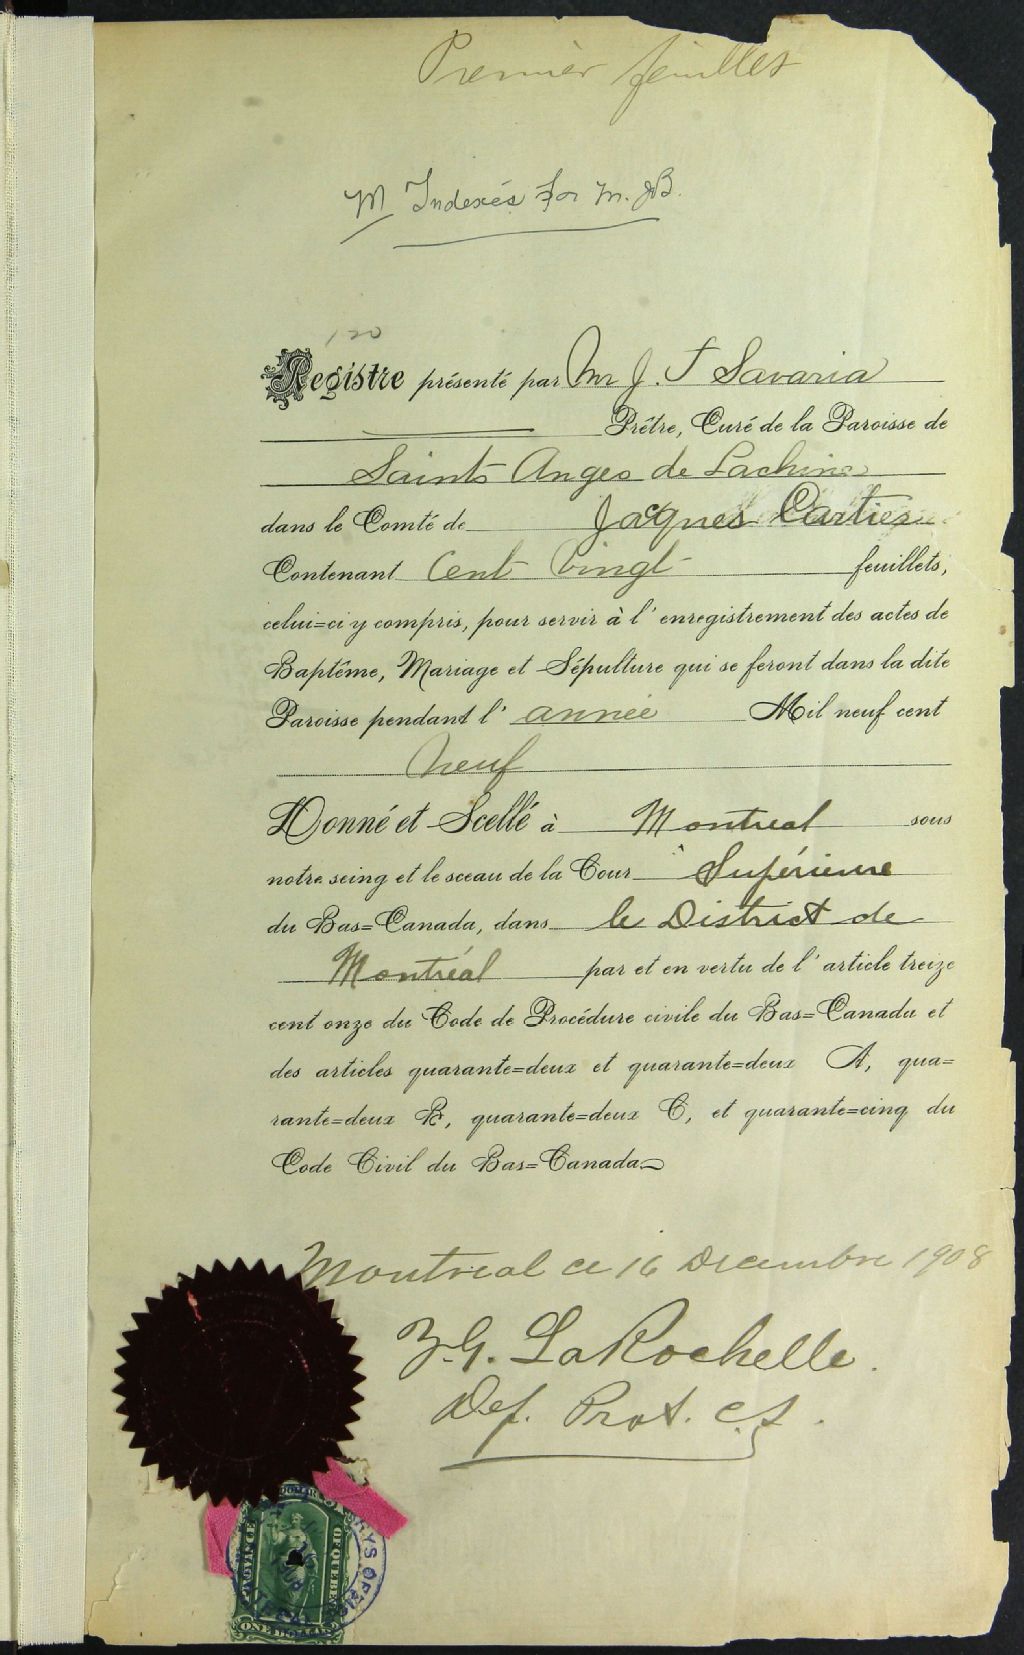 Premier feuillet
M Indexés for M. JB.
120
Registre présenté par Mr J. T Savaria
Prêtre, Curé de la Paroisse de
Saints Anges de Lachine
dans le Comté de Jacques Cartier
Contenant Cent Vingt feuillets,
celui=ci y compris, pour servir à l'enregistrement des actes de
Baptême, Mariage et Sépulture qui se feront dans la dite
Paroisse pendant l'année Mil neuf cent
neuf
Donné et Scellé à Montreal sous
notre seing et le sceau de la Cour Supérieure
du Bas=Canada, dans le District de
Montréal par et en vertu de l'article treize
cent onze du Code de Procédure civile du Bas=Canada et
des articles quarante=deux et quarante=deux A, qua=
rante=deux B, quarante=deux C, et quarante=cinq du
Code Civil du Bas=Canada.
Montreal ce 16 Decembre 1908
Z.G. LaRochelle.
Dep. Prot. C.S.
OF QUEBEC